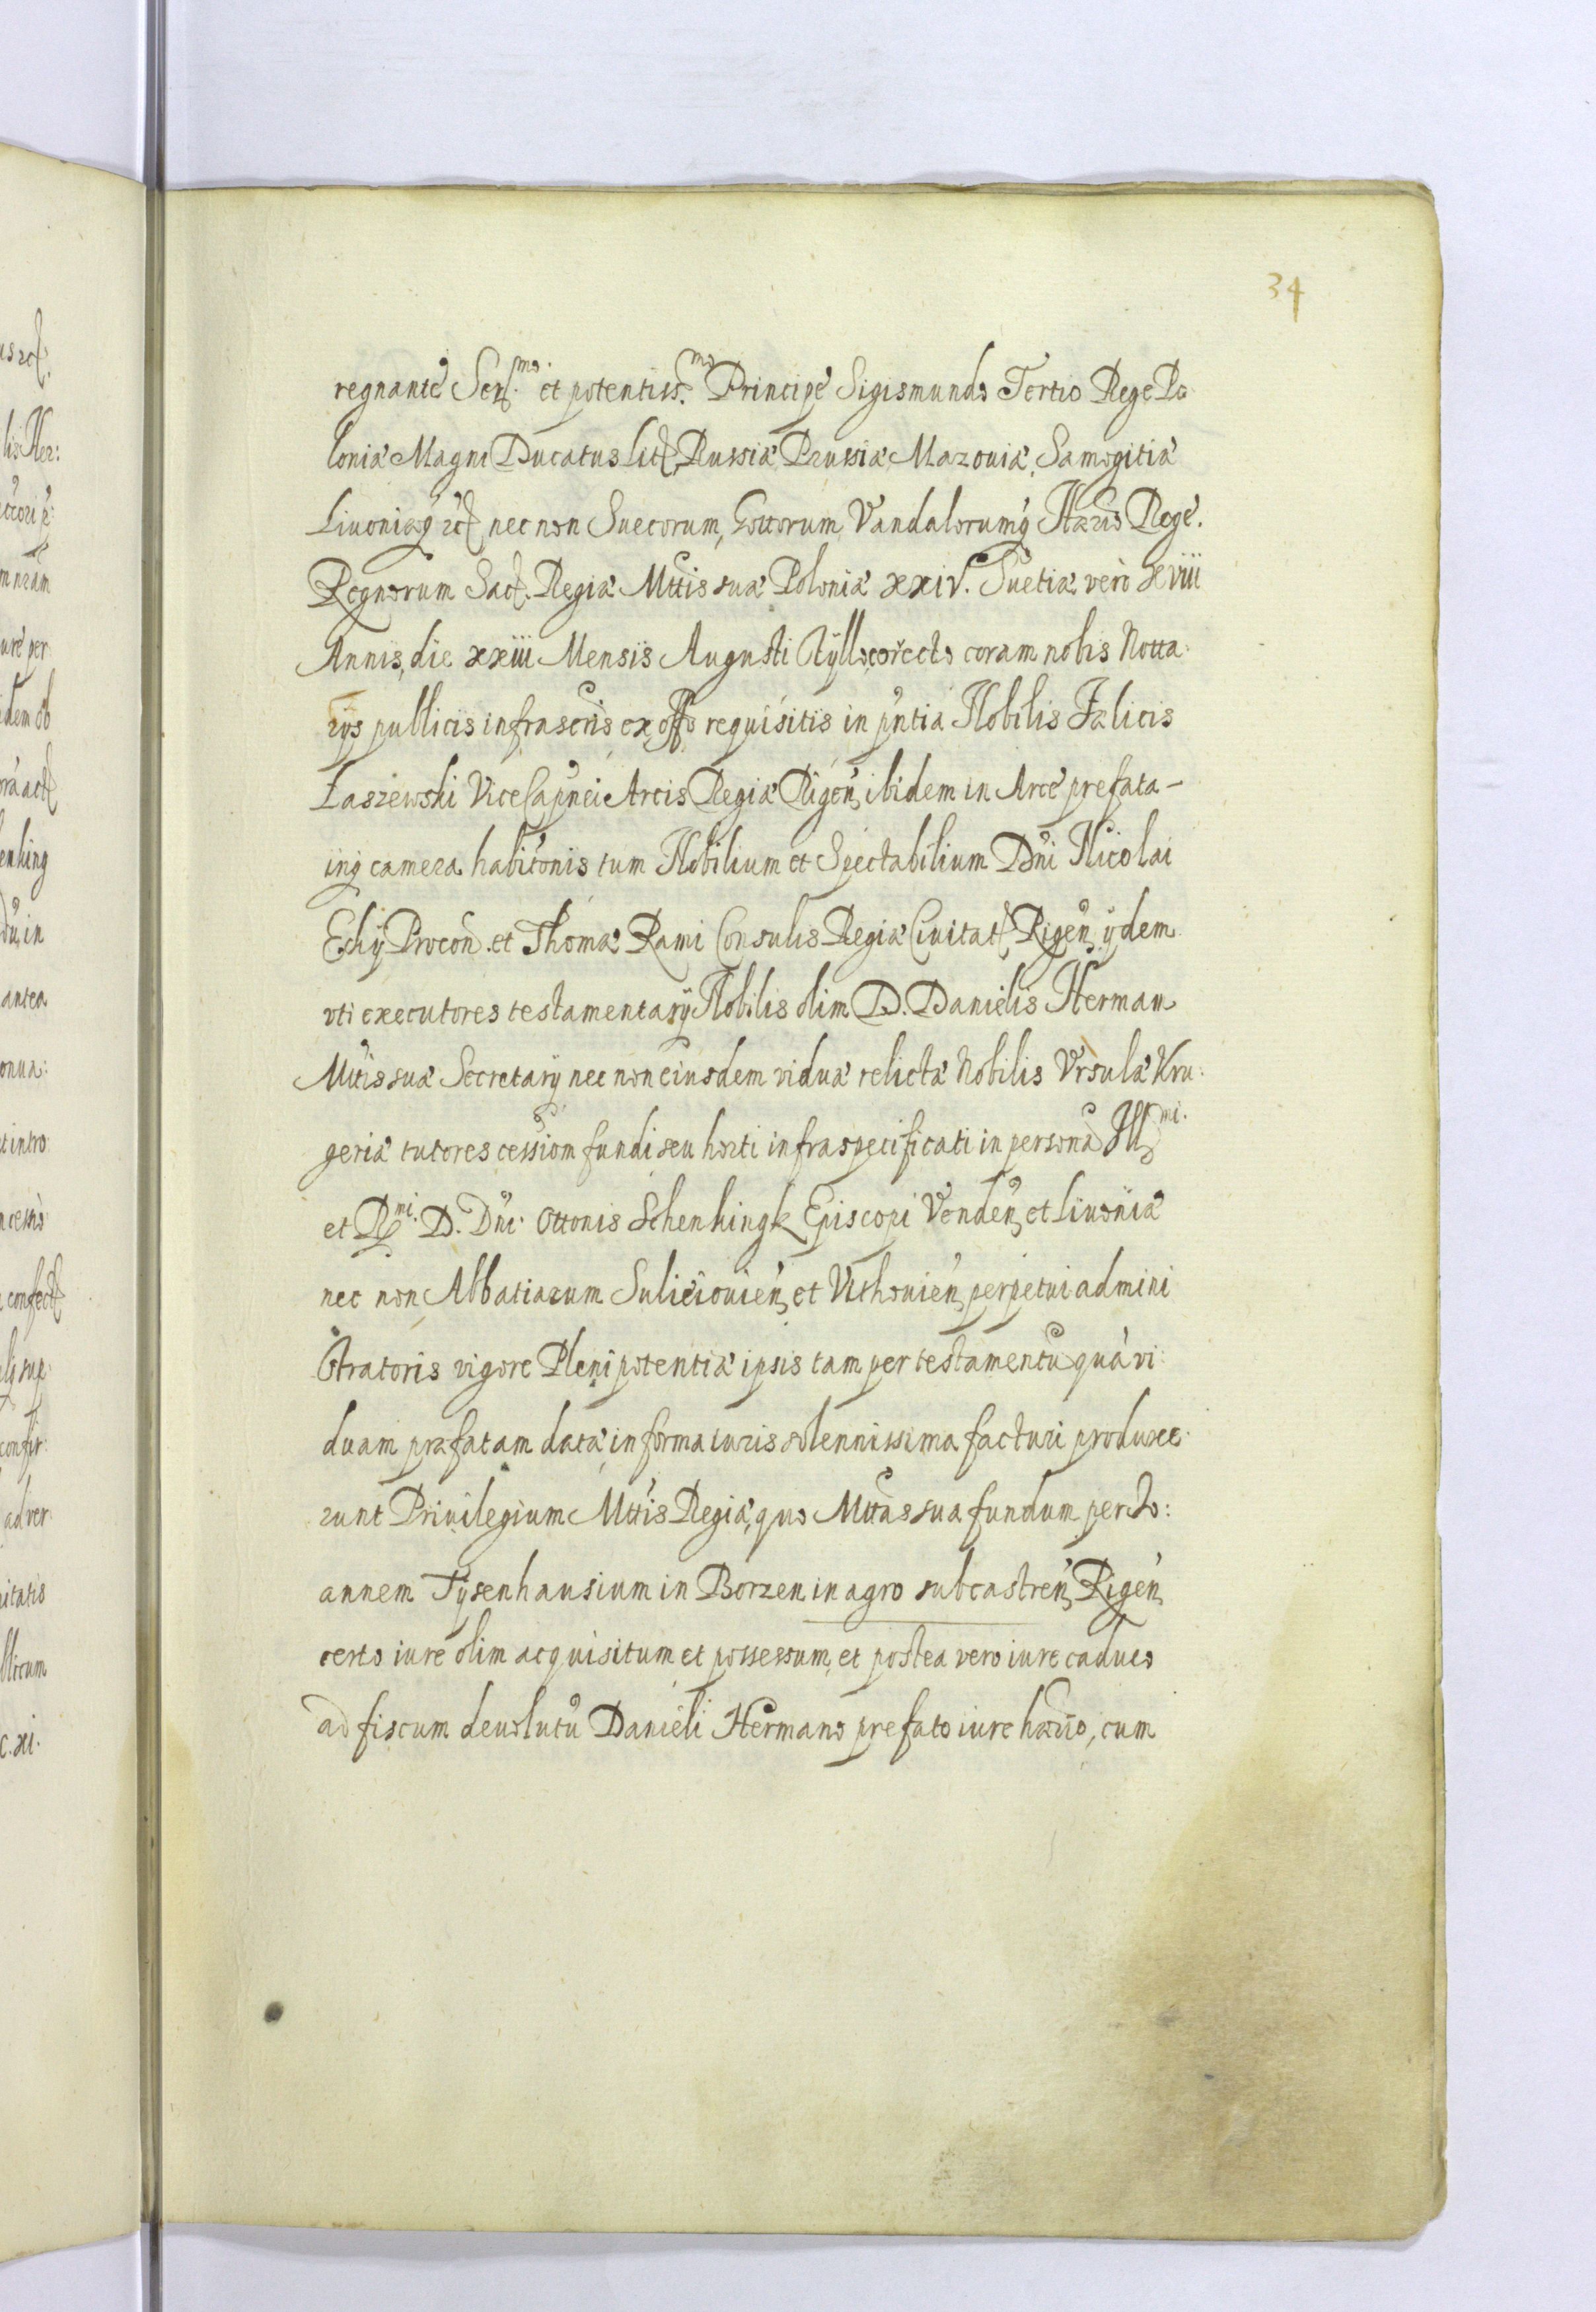 34
regnante Ser.mo et potentiss.mo Principe Sigismundo Tertio Rege Po
loniæ Magni Ducatus Lit. Russiæ Prussiæ, Mazouiæ, Samogitiæ
Liuoniæq₃ etc. nec non Suecorum, Gottorum Vandalorumq₃ Hærᵒ Rege.
Regnorum Sac. Regiæ Mttis suæ Poloniæ xxiv. Suetiæ vero xviii
Annis, die xxiii Mensis Augusti stÿllo correcto coram nobis Notta
rÿs publicis infrascris ex offo requisitis in pntia Nobilis Fælicis
Łaszewski Vice Capnei Arcis Regiæ Rigen, ibidem in Arce prefata
inq₃ camera habitonis tum Nobilium et Spectabilium Dni Nicolai
Ekij Procon. et Thomæ Rami Consulis Regiæ Ciuitat. Rigen, ÿdem
vti executores testamentarÿ Nobilis olim D. Danielis Herman
Mttis suæ Secretarÿ nec non eiusdem viduæ relictæ Nobilis Vrsulæ Kru
geriæ tutores cessiom fundi seu horti infraspecificati in persona Ill mi.
et R mi. D. Dni. Ottonis Schenkingk Episcopi Venden, et Liuoniæ
nec non Abbatiarum Suleiouien, et Vithouien, perpetui admini
stratoris vigore Plenipotentiæ ipsis tam per testamentu qua vi
duam præfatam datæ, in forma iuris solennissima facturi produxe
runt Priuilegium Mttis Regiæ, quo Mttas sua fundum per Jo:
annem Tÿsenhausium in Borzen in agro subcastren, Rigen,
certo iure olim acquisitum et possessum, et postea vero iure caduco
ad fiscum deuolutu Danieli Hermano prefato iure hærio, cum